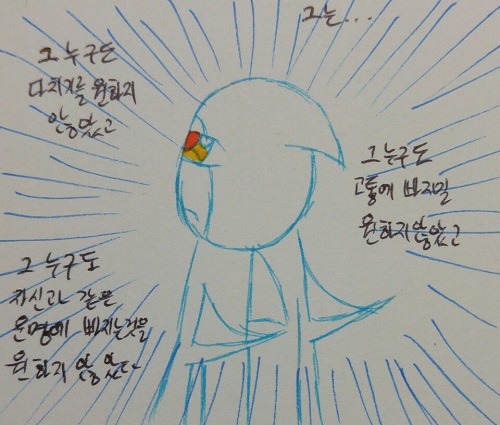 그는...
그 누구도
다치기를 원하지
않았고
그 누구도
고통에 빠지길
원하지 않았고
그 누구도
자신과 같은
운명에 빠지는것을
원하지 않았다